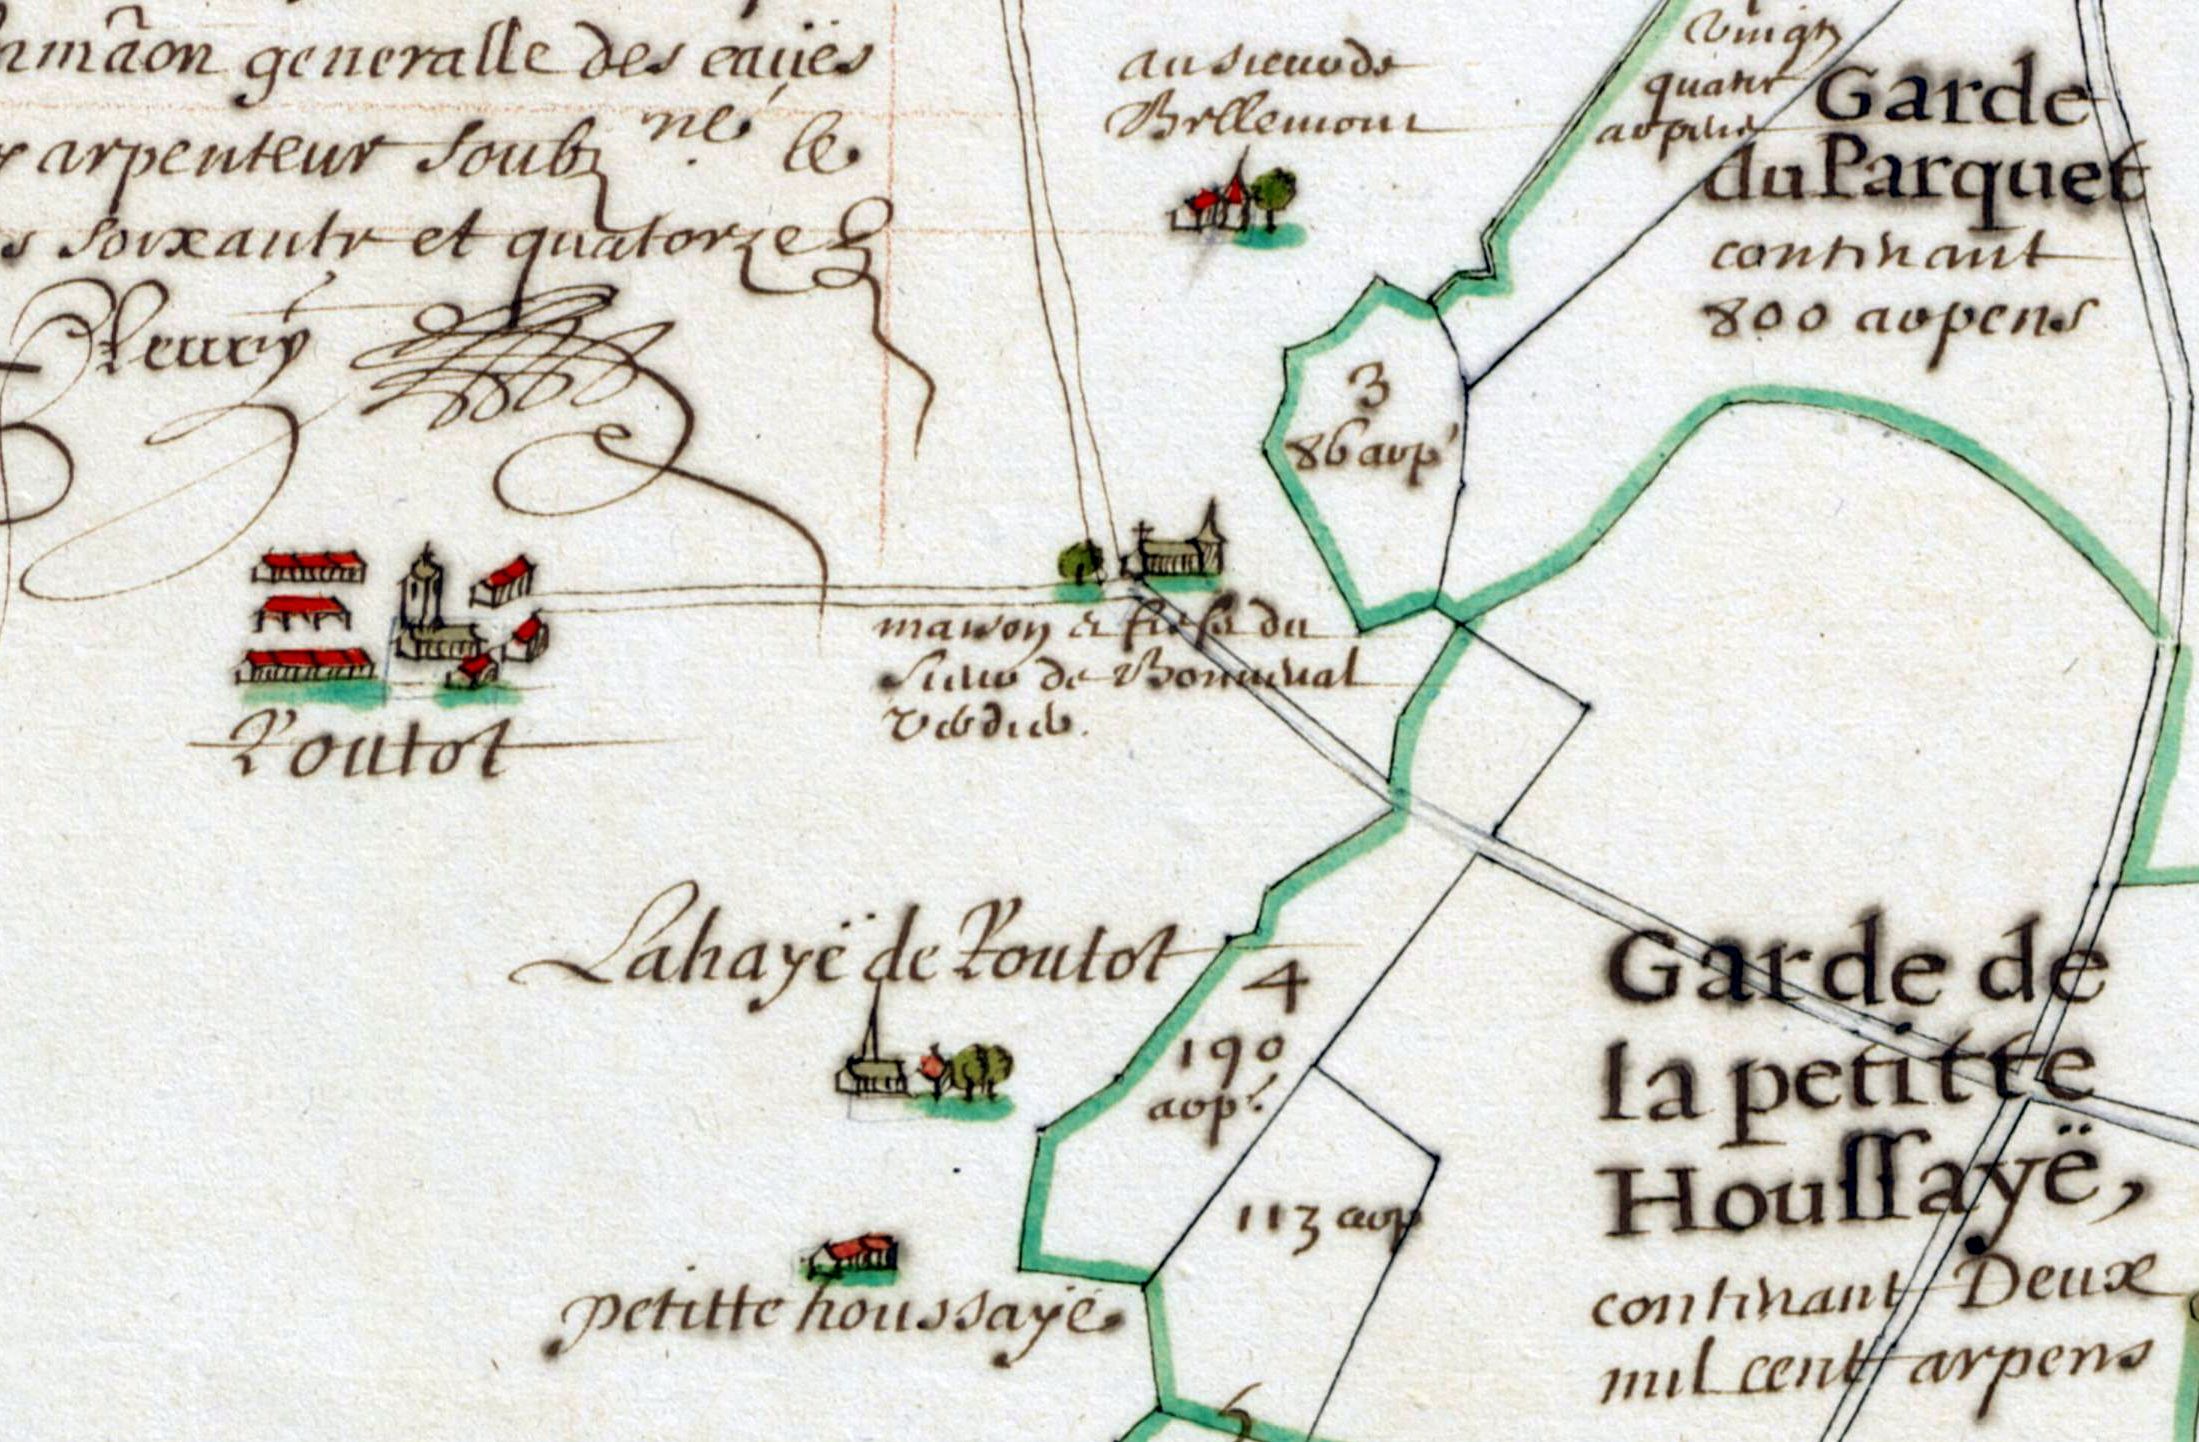 generalle des eaües
arpenteur soubz né le
soixante et quatorze
Fleury
au sieur de
Bellemont
vingt
quatre
arpens
Garde
du Parquet
continant
800 arpens
3
86 arp
Routot
maison & fiefs du
sieur de Bonneval
Lahayë de Routot
4
190
arp.
113 arp
petitte houssaye
Garde de
la petitte
Houssayë,
continant Deux
mil cent arpens
5